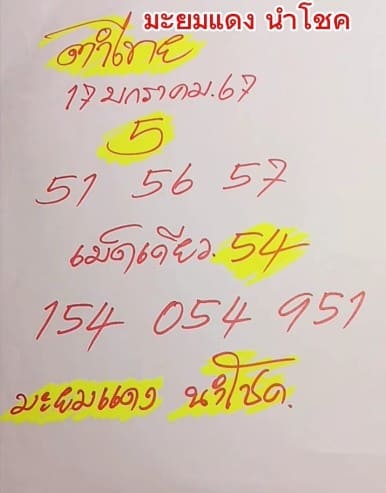 มะยมแดง นำโชค
ทำไทย
17 มกราคม.67
5
51 56 57
เม็ดเดียว. 54
154 054 951
มะยมแดง นำโชค.